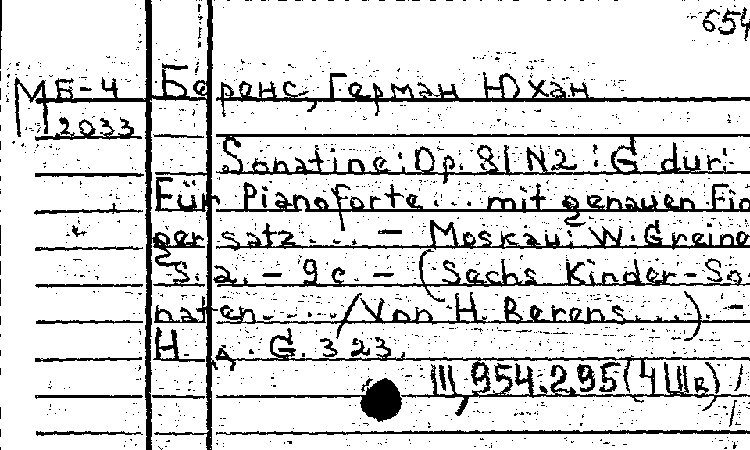 654
МБ-4 Беренс, Герман Юхан
2033
Sonatine: Op. 81 N2: G dur:
Für Pianoforte... mit genauen Fin
ger satz... - Moskau: W. Greine
S. a. - 9 c. - (Sechs Kinder-So
naten..../Von H. Berens...). -
H. A. G. 323.
III, 954.2.95 (4 Шв)